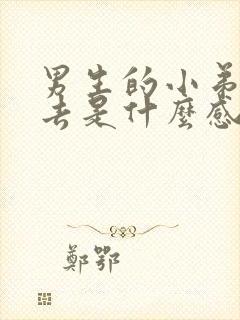 男生的小弟
去是什麼感
鄭鄂